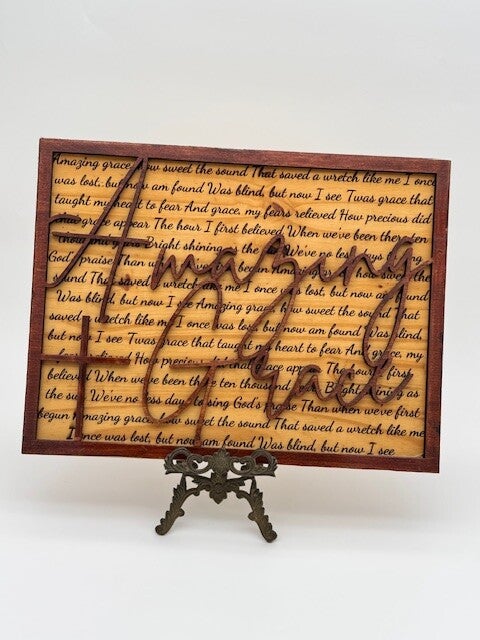 Amazing grace how sweet the sound That saved a wretch like me I once
was lost, but now am found Was blind, but now I see Twas grace that
taught my heart to fear And grace, my fears relieved How precious did
grace appear The hour I first believed When we've been there ten
thousand years Bright shining as the We've no less days
God's praise Than we begun Amazing grace how sweet the
sound That saved a wretch like me I once was lost, but now am found
Was blind, but now I see Amazing grace, how sweet the sound That
saved a wretch like me I once was lost, but now am found Was blind,
but now I see Twas grace that taught my heart to fear And grace, my
fears relieved How precious did that grace appear The hour I first
believed When we've been there ten thousand Bright shining as
the sun We've no less days to sing God's praise Than when we've first
begun Amazing grace, how sweet the sound That saved a wretch like me
I once was lost, but now am found Was blind, but now I see
Amazing
Grace